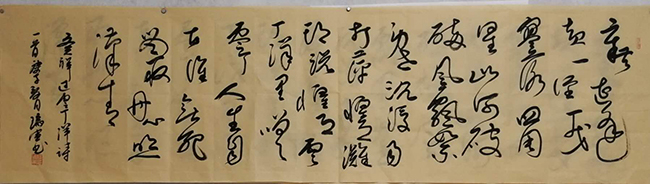 辛苦遭逢
起一经干戈
寥落四周
星山河破
碎风飘絮
身世沉浮雨
打萍惶恐滩
头说惶恐零
丁洋里叹
零丁人生自
古谁无死
留取丹心照
汗青
文天祥过零丁洋诗
一首